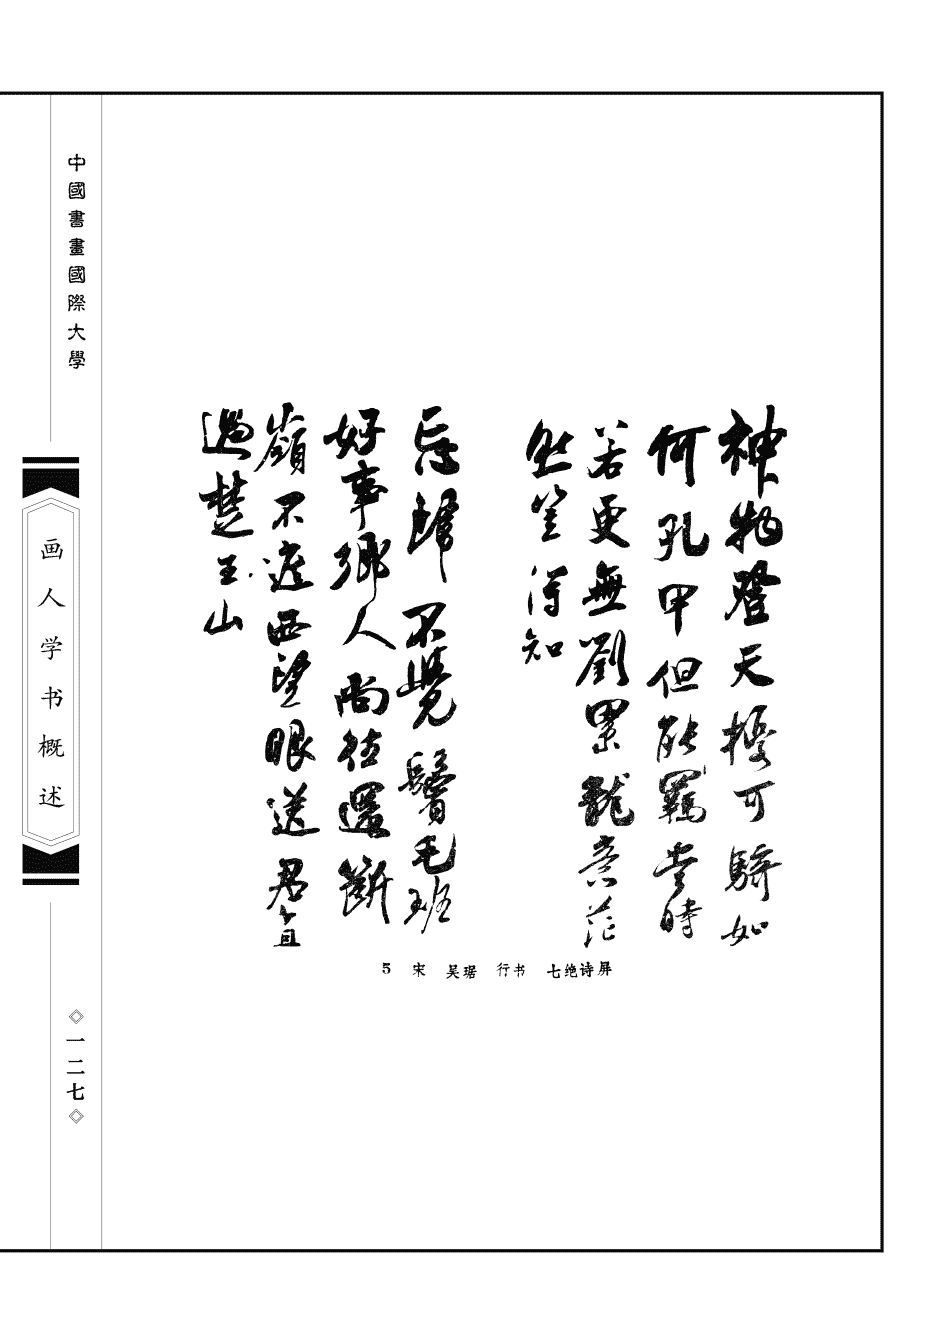 神物登天擾可騎如
何孔甲但能羈當時
若更無劉累龍意茫
然豈得知
忘歸不覺鬢毛班
好事鄉人尚往還斷
嶺不遮西望眼送君直
過楚王山
5 宋 吴琚 行书 七绝诗屏
中國書畫國際大學
画人学书概述
一二七